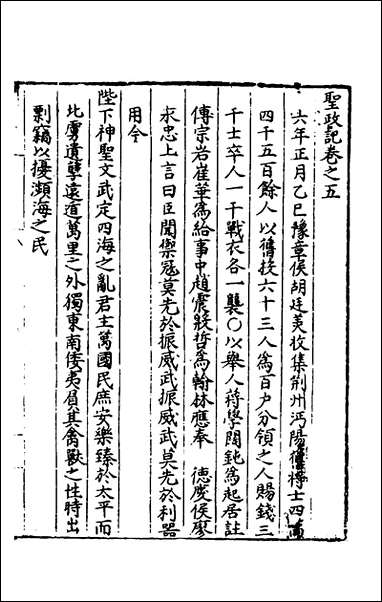 聖政記卷之五
六年正月乙巳豫章侯胡廷美收集荊州沔陽舊將士四萬
四千五百餘人以舊校六十三人為百户分領之人賜錢三
千士卒人一千戰衣各一襲〇以舉人蔣學閻鈍為起居註
傅宗岩崔華為給事中趙震殷哲為翰林應奉 德慶侯廖
永忠上言曰臣聞禦寇莫先於振威武振威武莫先於利器
用今
陛下神聖文武定四海之亂君主萬國民庶安樂臻於太平而
北虜遺孽遠遁萬里之外獨東南倭夷負其禽獸之性時出
剽竊以擾瀕海之民